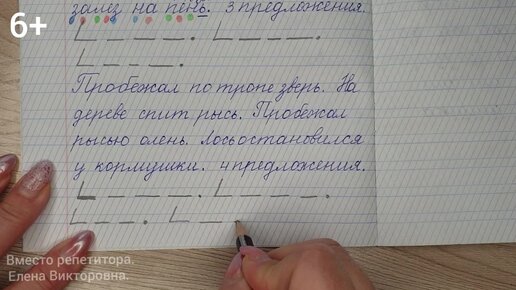 6+
залез на пень. 3 предложения.
Пробежал по тропе зверь. На
дереве спит рысь. Пробежал
рысью олень. Лось остановился
у кормушки. 4 предложения.
Вместо репетитора.
Елена Викторовна.